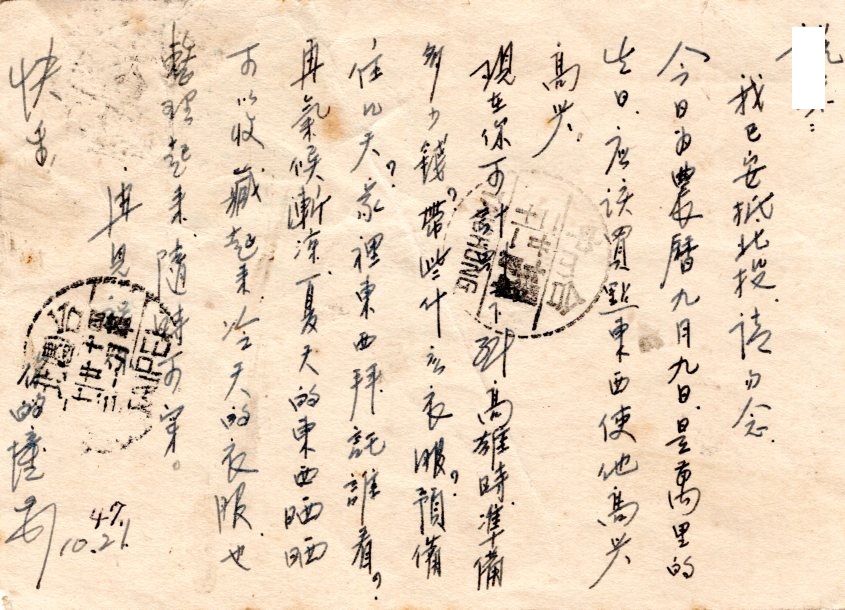 我已安抵北投.請勿念.
今日为農曆九月九日.是萬里的
生日.应该買點東西使他高兴
高兴。
現在你可計劃一下到高雄時準備
多少錢?帶些什么衣服?預備
住几天?家裡東西拜託誰看?
再氣候漸凉.夏天的東西晒晒
可以收藏起来.冷天的衣服也
整理起来.隨時可穿。
再見 祝
快乐
你的
47.
10.21.